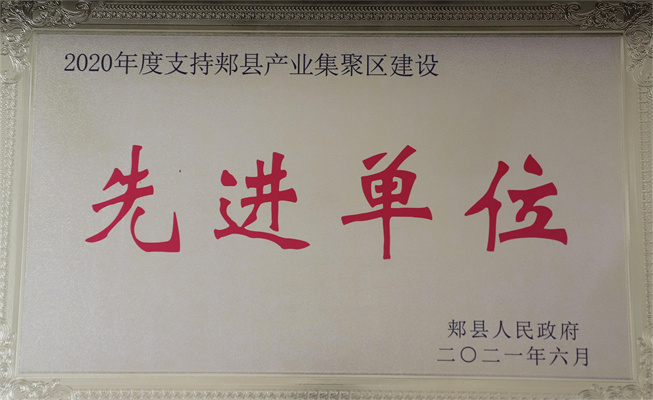 2020年度支持郏县产业集聚区建设
先进单位
郏县人民政府
二〇二一年六月